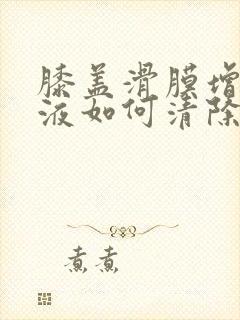 膝盖滑膜增
液如何清除
煮煮